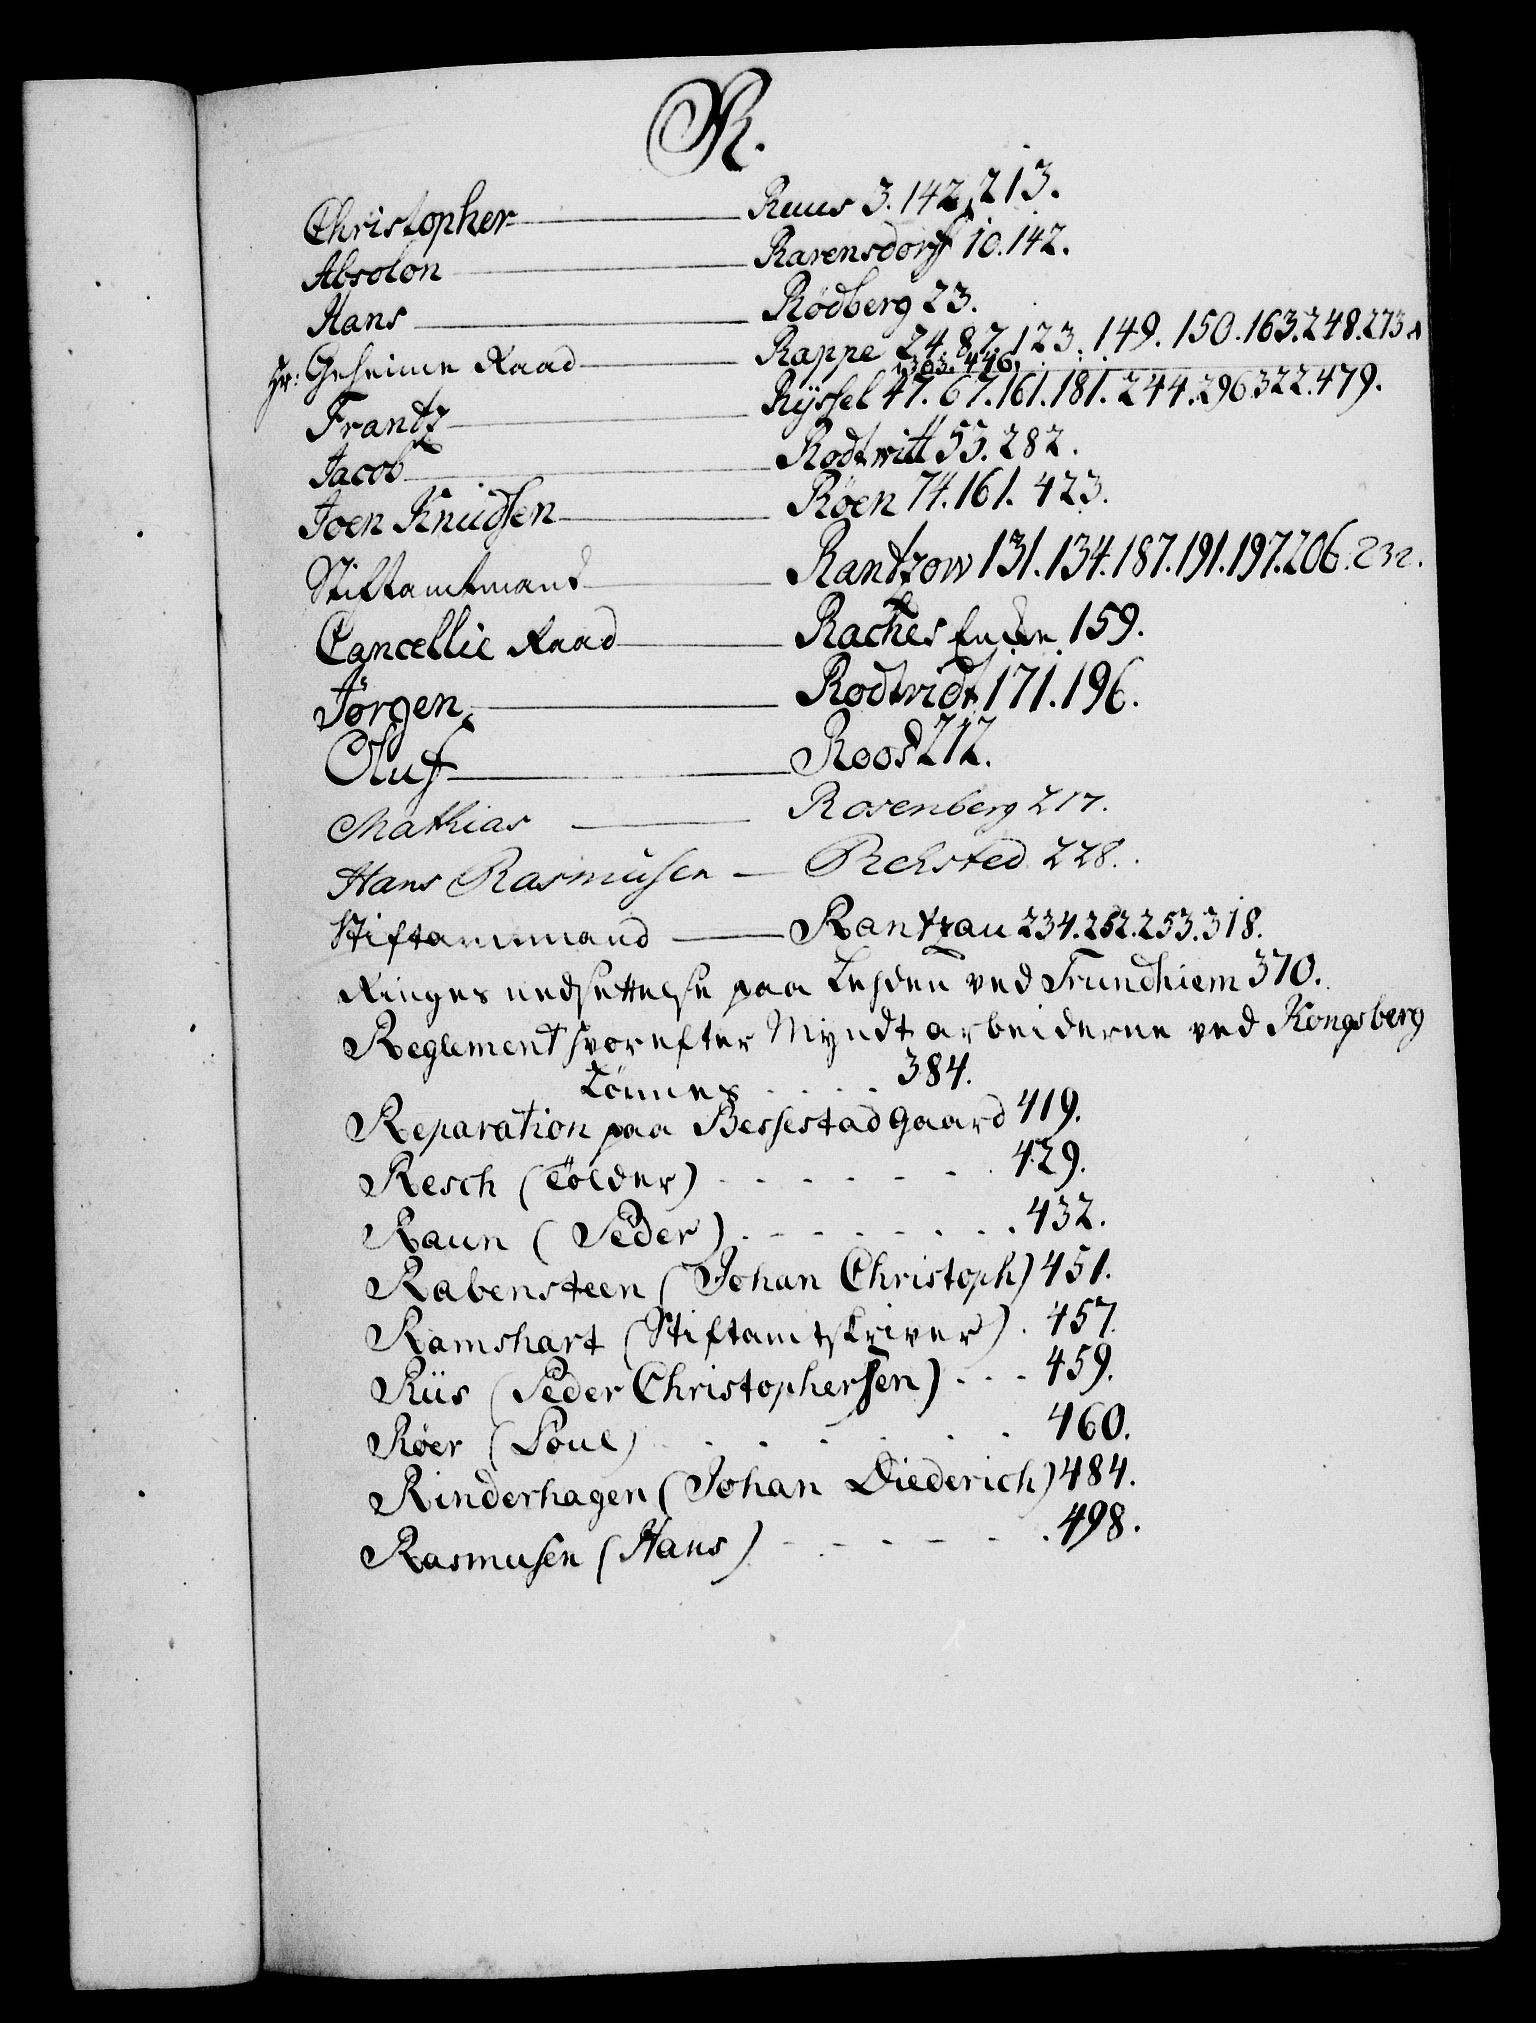 R.
Christopher Ruus 3. 142. 213.
Absolon Ravensdorff 10. 142.
Hans Rödberg 23.
Hr: Geheime Raad Rappe 24. 87. 123. 149. 150. 163. 248. 273
303. 446.
Frantz Ryssel 47. 67. 161. 181. 244. 296 322. 479.
Jacob Rodtwitt 53. 282.
Joen Knudsen Röen 74. 161. 423.
Stiftamtmand Rantzow 131. 134. 187. 191. 197. 206. 232.
Cancellie Raad Raches Encke 159.
Jörgen Rodtvidt 171. 196.
Oluf Roos 212.
Mathias Rosenberg 217.
Hans Rasmusen Rehsted 228.
Stiftammand Rantzau 234. 252. 253. 318.
Ringes nedsettelse paa Lehden ved Trundhiem 370.
Reglement hvorefter Myndt arbeiderne ved Kongsberg
Lönnes 384.
Reparation paa Bessestad Gaard 419.
Resch (Tolder) 429.
Raun (Peder) 432.
Rabensteen (Johan Christoph) 451.
Ramshart (Stiftamtskriver) 457.
Riis (Peder Christophersen) 459.
Röer (Poul) 460.
Rinderhagen (Johan Diederich) 484.
Rasmusen (Hans) 498.